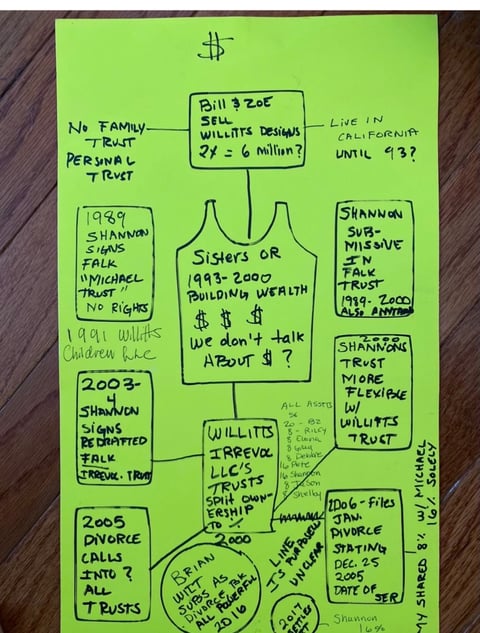 $
Bill $ ZOE
SELL
WILLITTS DESIGNS
2X = 6 million?
NO FAMILY
TRUST
PERSONAL
TRUST
LIVE IN
CALIFORNIA
UNTIL 93?
1989
SHANNON
SIGNS
FALK
"MICHAEL
TRUST"
NO RIGHTS
Sisters OR
1993-2000
BUILDING WEALTH
$ $ $
We don't talk
ABOUT $ ?
SHANNON
SUB-
MISSIVE
IN
FALK
TRUST
1989-2000
1991 Willitts
Children
2000
SHANNONS
TRUST
MORE
FLEXIBLE
W/
WILLITTS
TRUST
2003-
4
SHANNON
SIGNS
REDRAFTED
FALK
IRREVOC. TRUST
WILLITTS
IRREVOC
LLC'S
TRUSTS
SPLIT OWN-
ERSHIP
TO %
2000
ALL ASSETS
20 - BZ
8 - RILEY
8 Elaina
8 Guy
8 Debbie
16 Pete
16 Shannon
8 Jason
8 Shelby
2005
DIVORCE
CALLS
INTO ?
ALL
TRUSTS
BRIAN
WILT
SUBS AS
DIVORCE
ALL POWERFUL
2016
LINE
IS PURPOSELY
UNCLEAR
2006-Files
JAN.
DIVORCE
STATING
DEC. 25
2005
DATE OF
SER
2017
MY SHARED 8% W/ MICHAEL
16% SOLELY
Shannon
16%